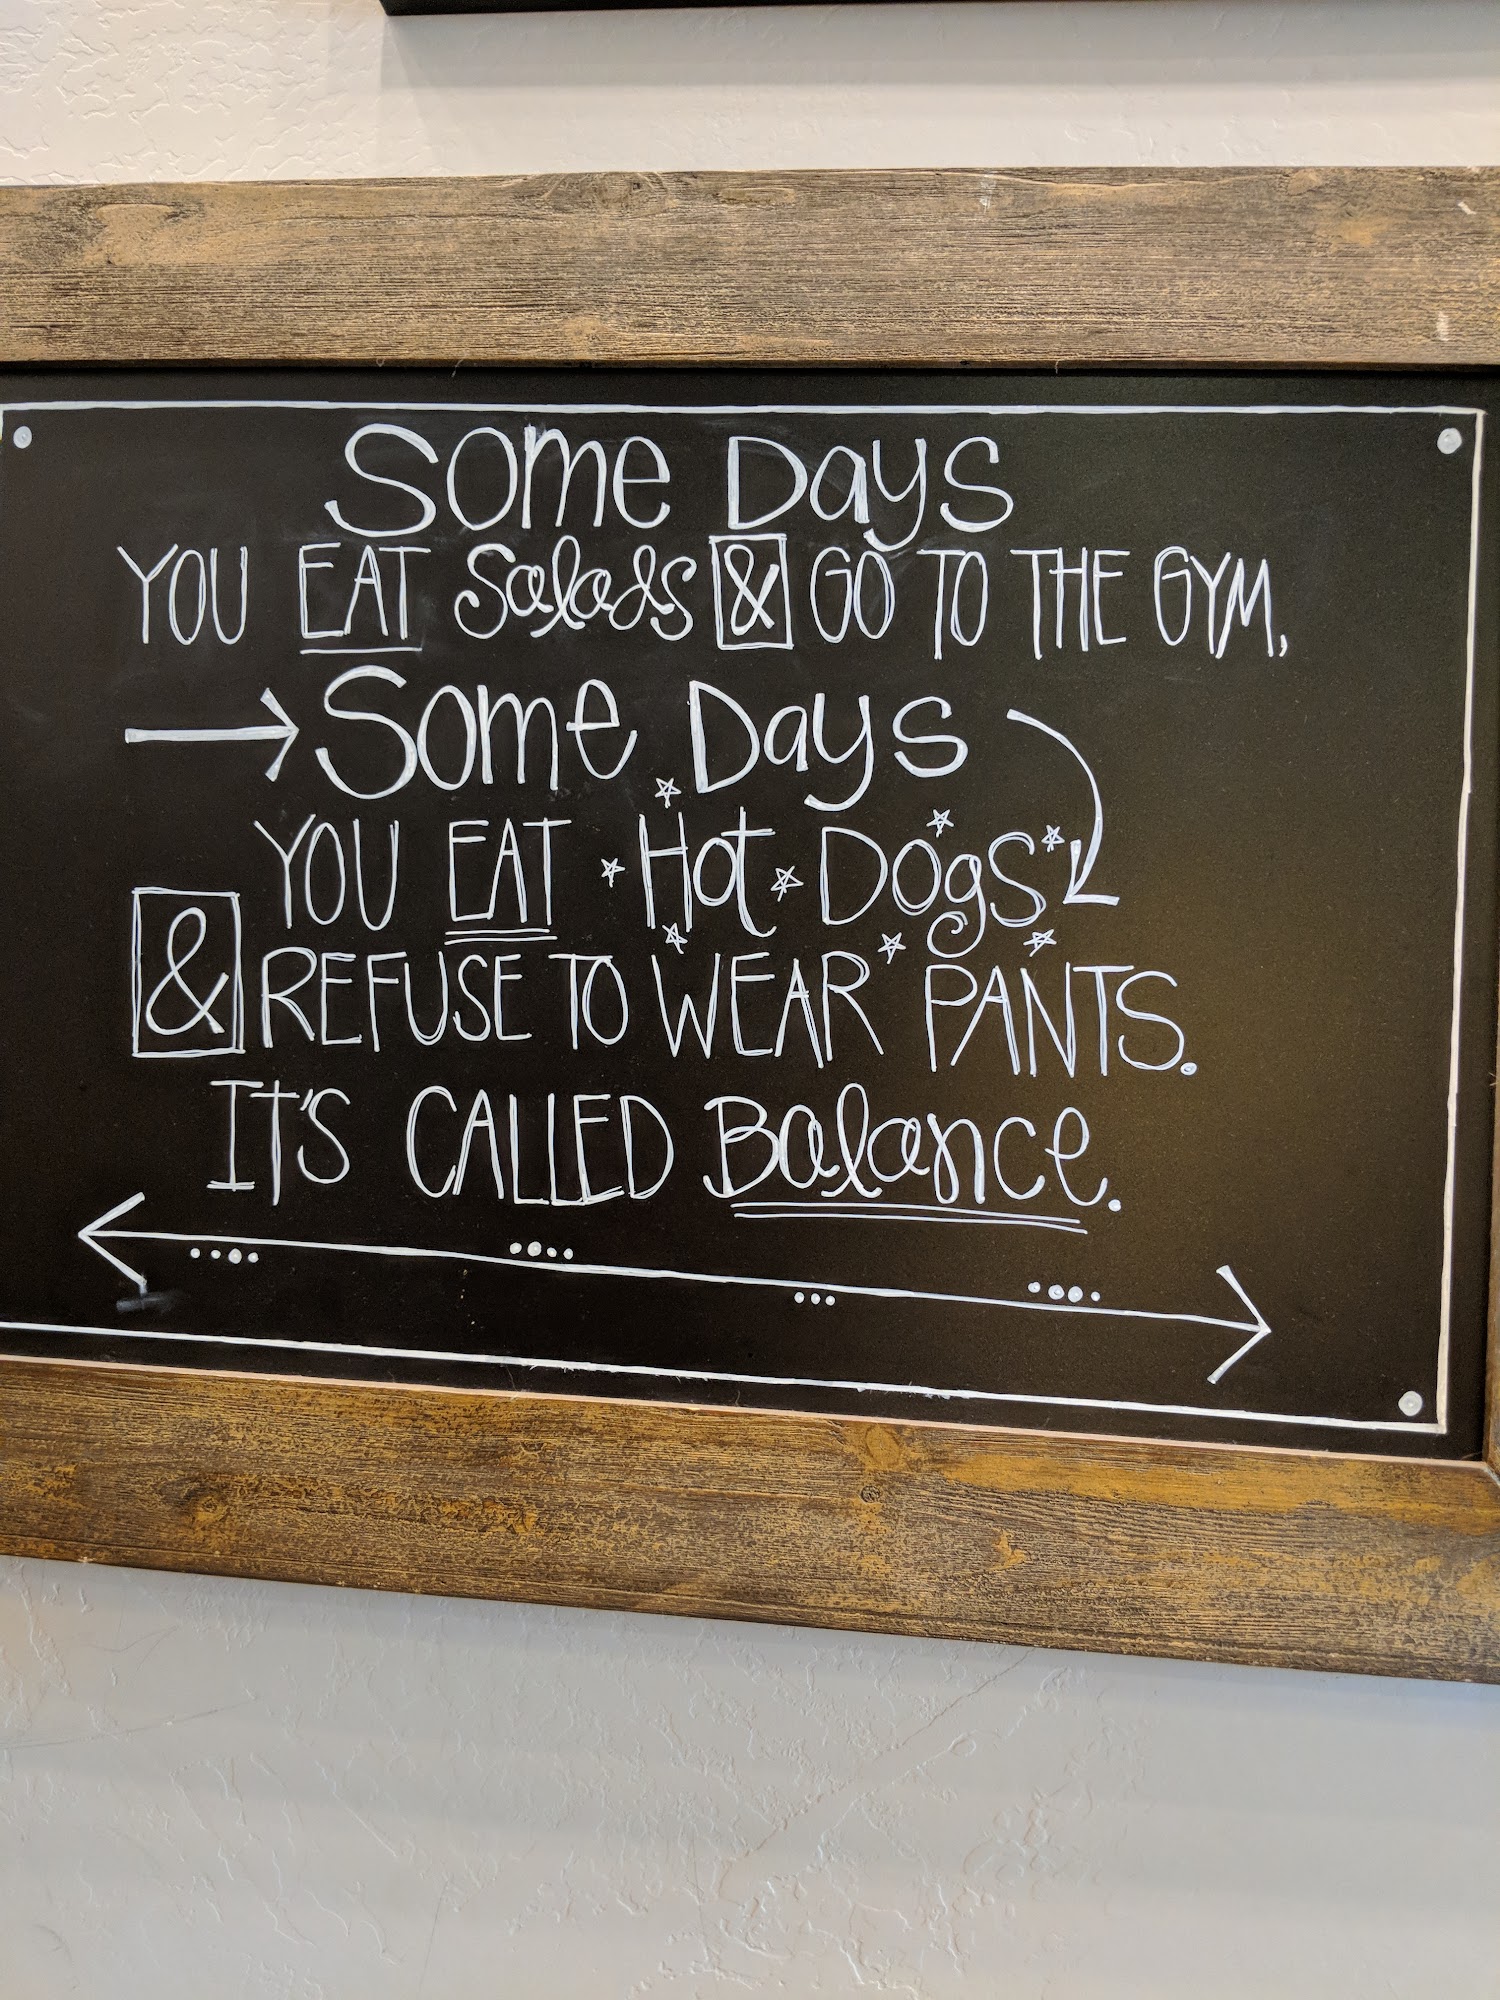 Some Days
YOU EAT Salads & GO TO THE GYM,
Some Days
YOU EAT Hot Dogs
& REFUSE TO WEAR PANTS.
IT'S CALLED Balance.